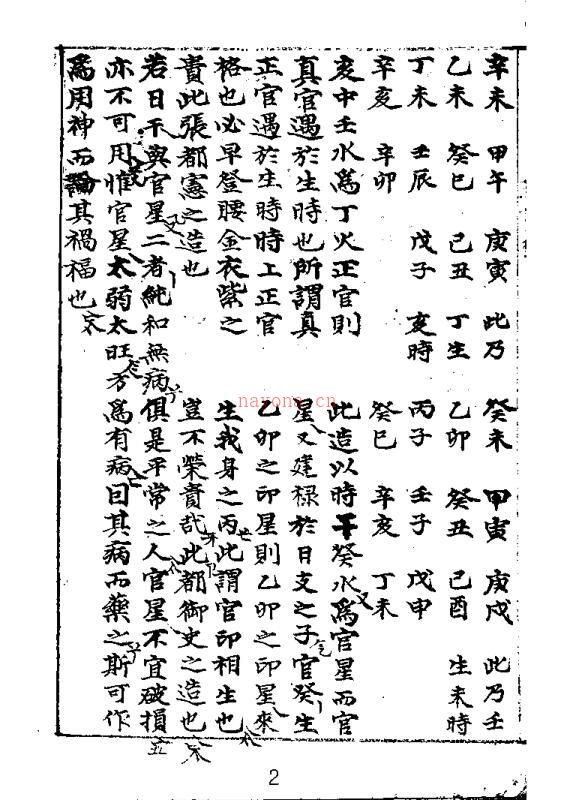 辛未　甲午　庚寅　此乃
乙未　癸巳　己丑　丁生
丁未　壬辰　戊子　亥時
辛亥　辛卯
亥中壬水爲丁火正官則
真官遇於生時也所謂真
正官遇於生時時上正官
格也必早登腰金衣紫之
貴此張都憲之造也
癸未　甲寅　庚戌　此乃壬
乙卯　癸丑　己酉　生未時
丙子　壬子　戊申
癸巳　辛亥　丁未
此造以時干癸水爲官星而官
星又建祿於日支之子官癸生
乙卯之印星則乙卯之印星來
生我身之丙此謂官印相生也
豈不榮貴哉此都御史之造也
若日干與官星二者純和無病俱是平常之人官星不宜破損
亦不可用惟官星太弱太旺方爲有病曰其病而藥之斯可作
爲用神而論其禍福也
nayona.cn
2